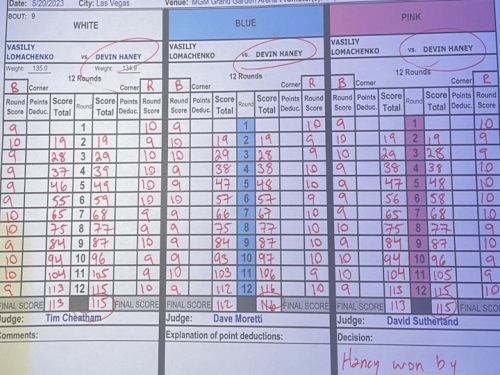 Date: 5/20/2023 City: Las Vegas Venue: MGM Grand Garden Arena
BOUT: 9
WHITE BLUE PINK
VASILIY LOMACHENKO vs. DEVIN HANEY VASILIY LOMACHENKO vs. DEVIN HANEY VASILIY LOMACHENKO vs. DEVIN HANEY
Weight: 135.0 Weight: 134.9
12 Rounds 12 Rounds 12 Rounds
B Corner Corner R B Corner Corner R B Corner Corner R
Round Score Points Deduc. Score Total Round Score Total Points Deduc. Round Score Round Score Points Deduc. Score Total Round Score Total Points Deduc. Round Score Round Score Points Deduc. Score Total Round Score Total Points Deduc. Round Score
9 1 10 9 1 10 9 1 10
10 19 2 19 9 10 19 2 19 9 10 19 2 19 9
9 28 3 29 10 10 29 3 28 9 10 29 3 28 9
9 37 4 39 10 9 38 4 38 10 9 38 4 38 10
9 46 5 49 10 9 47 5 48 10 9 47 5 48 10
9 55 6 59 10 10 57 6 57 9 9 56 6 58 10
10 65 7 68 9 9 66 7 67 10 9 65 7 68 10
10 75 8 77 9 9 75 8 77 10 10 75 8 77 9
9 84 9 87 10 9 84 9 87 10 9 84 9 87 10
10 94 10 96 9 9 93 10 97 10 10 94 10 96 9
10 104 11 105 9 10 103 11 106 9 10 104 11 105 9
9 113 12 115 10 9 112 12 116 10 9 113 12 115 10
FINAL SCORE 113 115 FINAL SCORE FINAL SCORE 112 116 FINAL SCORE FINAL SCORE 113 115 FINAL SCORE
Judge: Tim Cheatham Judge: Dave Moretti Judge: David Sutherland
Comments: Explanation of point deductions: Decision:
Haney won by